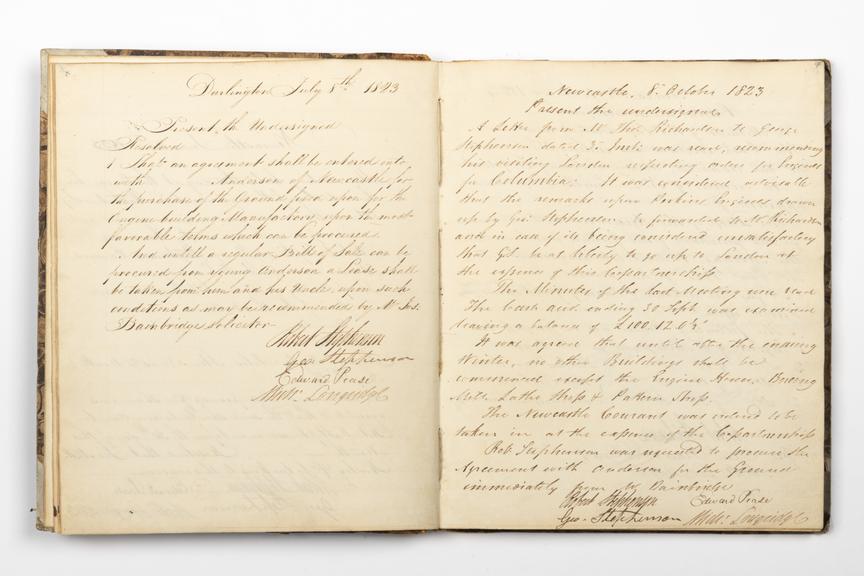 Darlington July 8th 1823
Present the Undersigned
Resolved
1 That an agreement shall be entered into
with Anderson of Newcastle for
the purchase of the Ground fixed upon for the
Engine building Manufactory upon the most
favorable terms which can be procured.
And untill a regular Bill of Sale can be
procured from young Anderson a Lease shall
be taken from him and his Uncle upon such
conditions as may be recommended by Mr
Bainbridge solicitor
Robert Stephenson
Geo. Stephenson
Edward Pease
Michl. Longridge
Newcastle, 8 October 1823
Present the undersigned
A Letter from Mr Thos Richardson to George
Stephenson dated 3d Inst: was read, recommending
his visiting London respecting orders for Engines
for Columbia; It was considered advisable
that the remarks upon Perkins Engines drawn
up by Geo: Stephenson be forwarded to Mr Richardson
and in case of its being considered unsatisfactory
that G.S. be at liberty to go up to London at
the expence of this Copartnership
The Minutes of the last Meeting were read
The Cash acct. ending 30 Sept was examined
leaving a balance of £100.12.0½
It was agreed that until after the ensuing
Winter, no other Buildings shall be
commenced except the Engine House,
Mill, Lathe Shop & Pattern Shop.
The Newcastle Courant was ordered to be
taken in at the expence of the Copartnership
Rob. Stephenson was requested to procure the
Agreement with Anderson for the Ground
immediately from Mr Bainbridge
Robert Stephenson Edward Pease
Geo. Stephenson Michl. Longridge